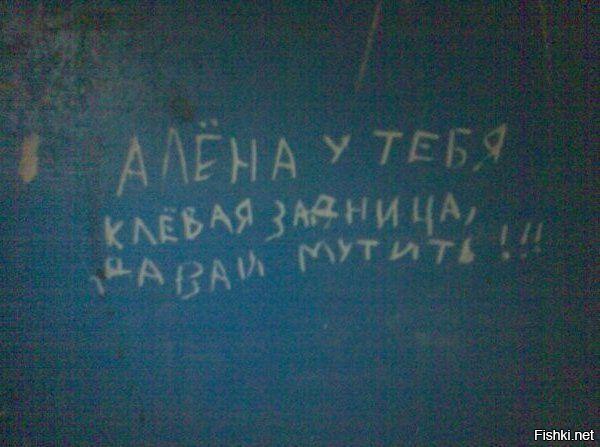 АЛЁНА У ТЕБЯ
КЛЁВАЯ ЗАДНИЦА,
ДАВАЙ МУТИТЬ!!!
Fishki.net